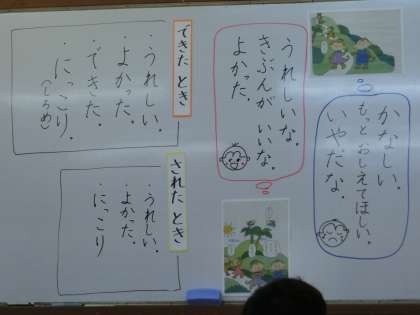 かなしい。
もっとおしえてほしい。
いやだな。
うれしいな。
きぶんがいいな。
よかった。
できたとき
・うれしい。
・よかった。
・できた。
・にっこり。
されたとき
・うれしい。
・よかった。
・にっこり